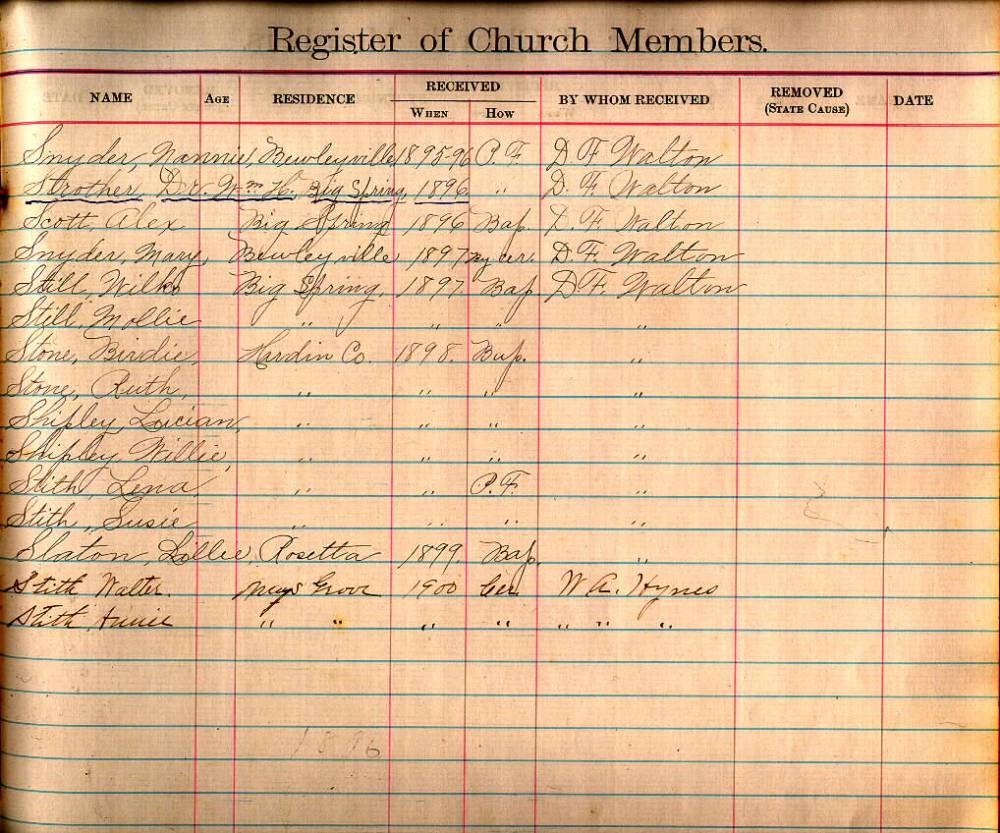 Register of Church Members.
NAME AGE RESIDENCE RECEIVED BY WHOM RECEIVED REMOVED DATE
WHEN HOW (STATE CAUSE)
Snyder, Nannie, Bewleyville 1895-96 P. F. D F Walton
Strother, Dr. Wm H. Big Spring, 1896 " D. F. Walton
Scott, Alex Big Spring 1896 Bap. D. F. Walton
Snyder, Mary, Bewleyville 1897 by cer. D. F. Walton
Still, Big Spring, 1897 Bap D. F. Walton
Still, Mollie " " " "
Stone, Birdie, Hardin Co. 1898. Bap. "
Stone, Ruth, " " " "
Shipley, Lucian, " " " "
Shipley, Willie, " " " "
Stith, Lena, " " P. F. "
Stith, Susie, " " " "
Slaton, Lillie, Rosetta 1899. Bap. "
Stith, Walter. Grove 1900 Cer. W. A. Hynes
Stith, Annie " " " " " " "
1896